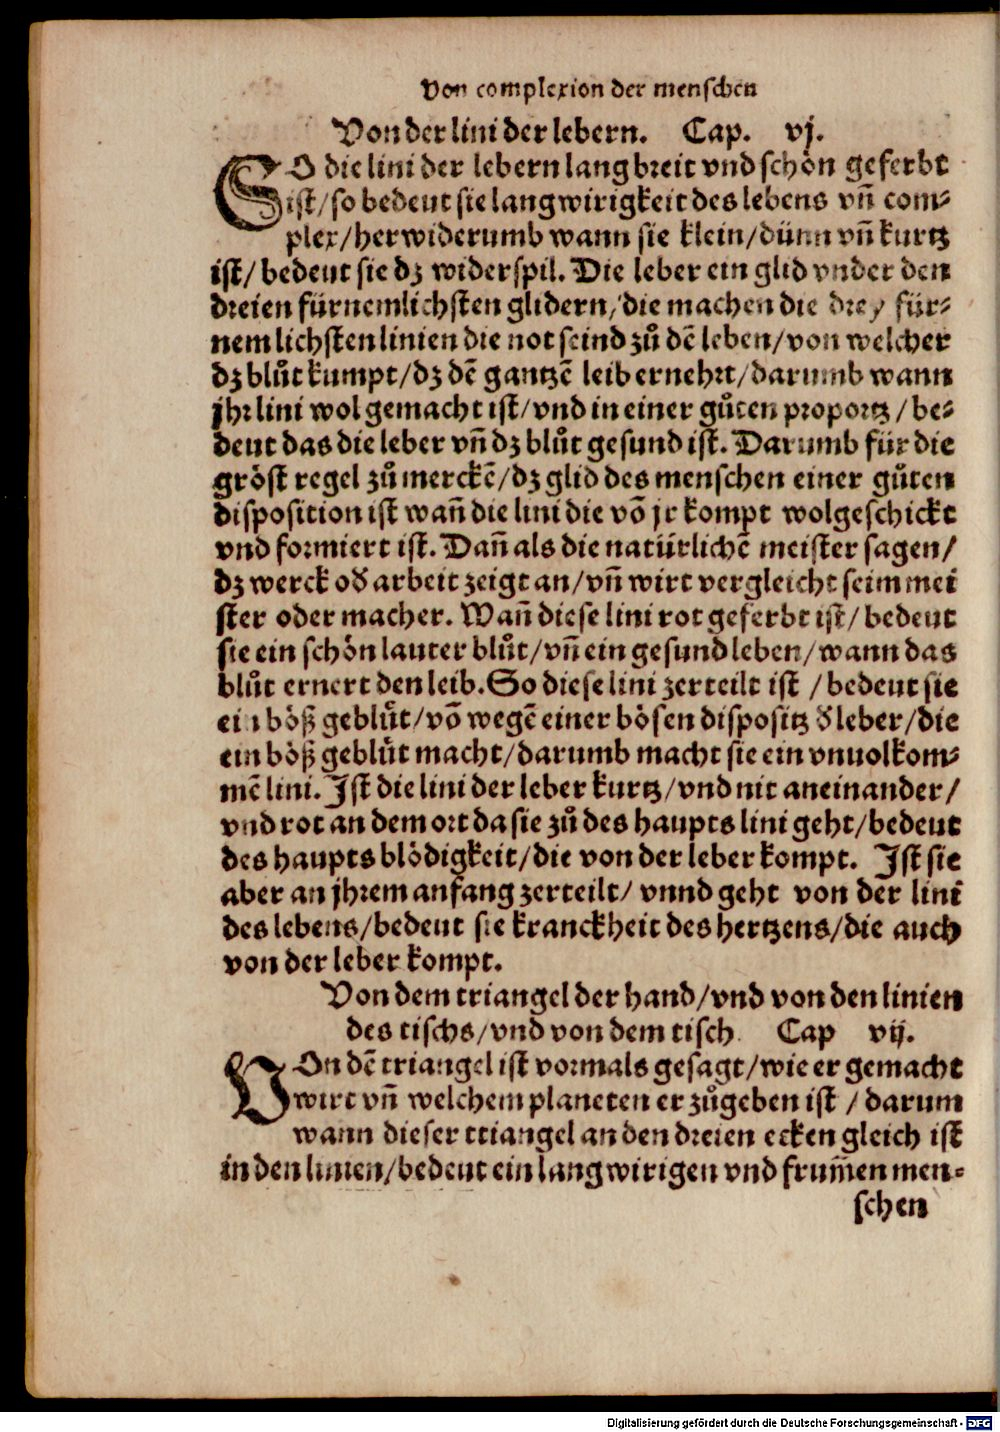 Von complexion der menschen
Von der lini der lebern. Cap. vj.
SO die lini der lebern lang breit vnd schön geferbt
ist/so bedeut sie langwirigkeit des lebens vñ com-
plex/herwiderumb wann sie klein/dünn vñ kurtz
ist/bedeut sie dz widerspil. Die leber ein glid vnder den
dreien fürnemlichsten glidern/die machen die drey für-
nemlichsten linien die not seind zů dē leben/von welcher
dz blůt kumpt/dz dē gantzē leib ernehrt/darumb wann
jhr lini wol gemacht ist/vnd in einer gůten proportz/be-
deut das die leber vñ dz blůt gesund ist. Darumb für die
gröst regel zů merckē/dz glid des menschen einer gůten
disposition ist wañ die lini die vō jr kompt wolgeschickt
vnd formiert ist. Dañ als die natürlichē meister sagen/
dz werck oď arbeit zeigt an/vñ wirt vergleicht seim mei
ster oder macher. Wañ diese lini rot geferbt ist/bedeut
sie ein schön lauter blůt/vñ ein gesund leben/wann das
blůt ernert den leib. So diese lini zerteilt ist/bedeut sie
ein böß geblůt/vō wegē einer bösen dispositz ď leber/die
ein böß geblůt macht/darumb macht sie ein vnuolkom-
mē lini. Ist die lini der leber kurtz/vnd nit aneinander/
vnd rot an dem ort da sie zů des haupts lini geht/bedeut
des haupts blödigkeit/die von der leber kompt. Ist sie
aber an jhrem anfang zerteilt/vnnd geht von der lini
des lebens/bedeut sie kranckheit des hertzens/die auch
von der leber kompt.
Von dem triangel der hand/vnd von den linien
des tischs/vnd von dem tisch. Cap vij.
VOn dē triangel ist vormals gesagt/wie er gemacht
wirt vñ welchem planeten er zůgeben ist/darum
wann dieser triangel an den dreien ecken gleich ist
in den linien/bedeut ein langwirigen vnd frum̄en men-
schen
Digitalisierung gefördert durch die Deutsche Forschungsgemeinschaft - DFG